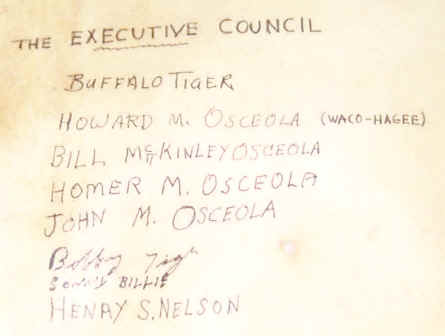 THE EXECUTIVE COUNCIL
BUFFALO TIGER
HOWARD M. OSCEOLA (WACO-HAGEE)
BILL McKINLEY OSCEOLA
HOMER M. OSCEOLA
JOHN M. OSCEOLA
Bobby Tiger
SONNY BILLIE
HENRY S. NELSON